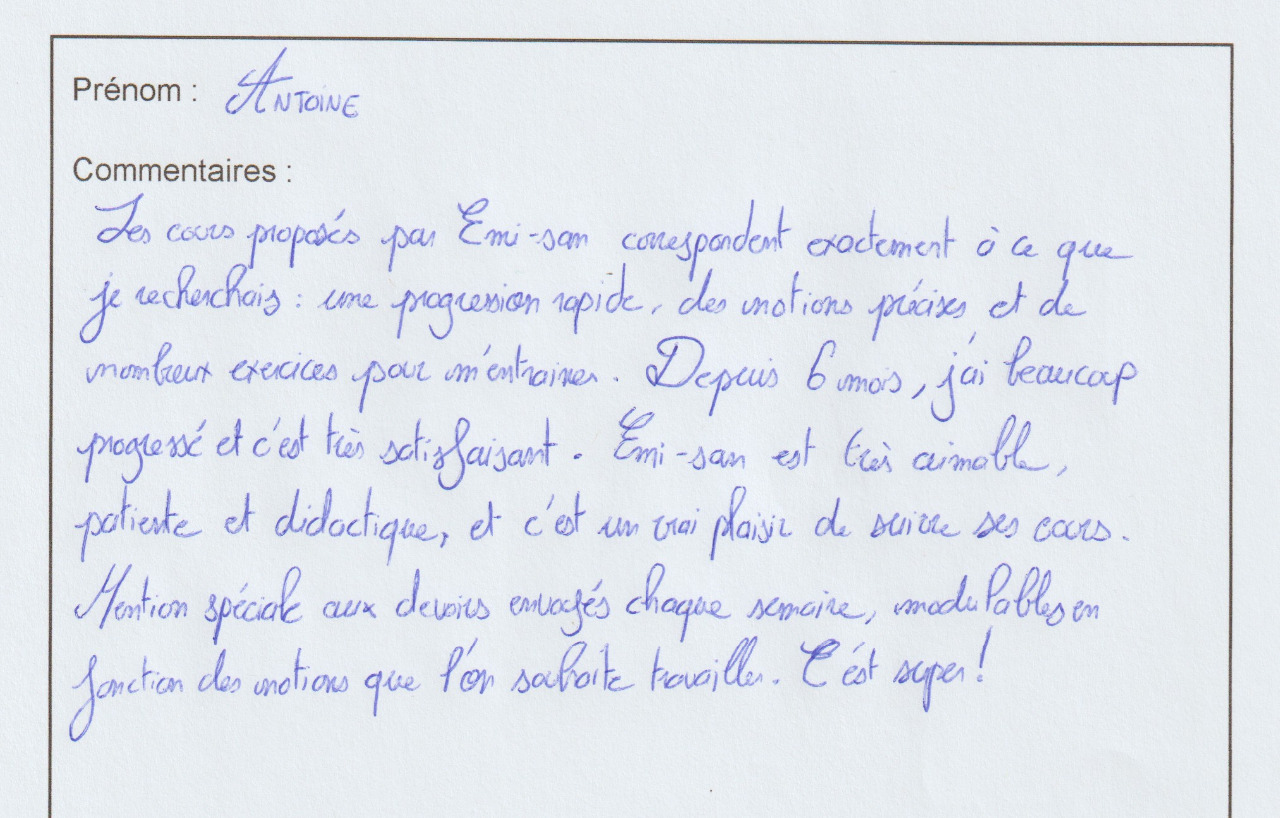 Prénom : Antoine
Commentaires :
Les cours proposés par Emi-san correspondent exactement à ce que
je recherchais : une progression rapide, des notions précises et de
nombreux exercices pour m'entrainer. Depuis 6 mois, j'ai beaucoup
progressé et c'est très satisfaisant. Emi-san est très aimable,
patiente et didactique, et c'est un vrai plaisir de suivre ses cours.
Mention spéciale aux devoirs envoyés chaque semaine, modulables en
fonction des notions que l'on souhaite travailler. C'est super !